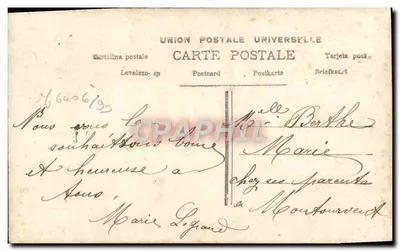 UNION POSTALE UNIVERSELLE
CARTE POSTALE
Cartolina postale
Tarjeta post
Levelezo-
Postcard
Postkarte
Briefkaart
Nous vous la
souhaittons bonne
et heureuse a
tous
Marie Legrand
Melle Berthe
Marie
chez ses parents
a Montourvent